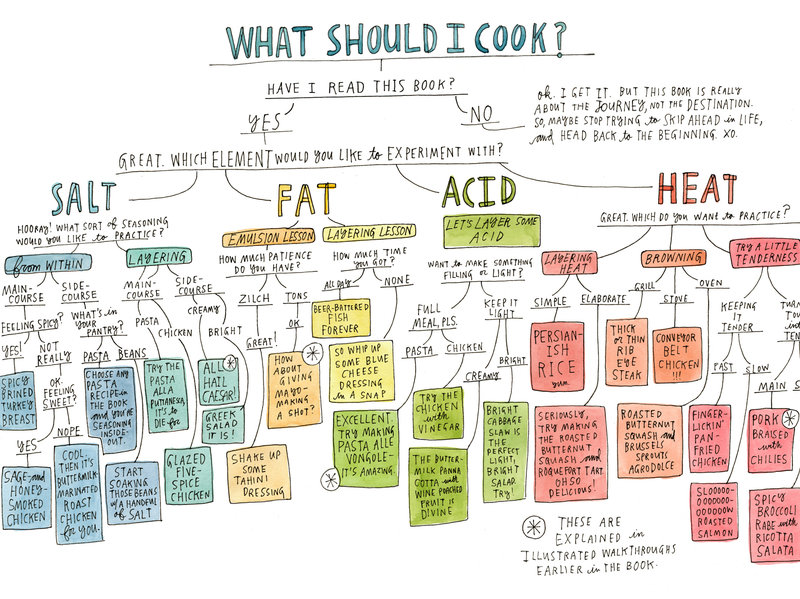 WHAT SHOULD I COOK?
HAVE I READ THIS BOOK?
YES
NO
ok. I GET IT. BUT THIS BOOK IS REALLY
ABOUT THE JOURNEY, NOT THE DESTINATION.
SO, MAYBE STOP TRYING to SKIP AHEAD in LIFE,
and HEAD BACK to THE BEGINNING. XO.
GREAT. WHICH ELEMENT WOULD YOU LIKE to EXPERIMENT WITH?
SALT
HOORAY! WHAT SORT of SEASONING
WOULD YOU LIKE to PRACTICE?
from WITHIN
MAIN-
COURSE
FEELING SPICY?
YES!
SPICY
BRINED
TURKEY
BREAST
NOT
REALLY
OK.
FEELING
SWEET?
YES
SAGE and
HONEY-
SMOKED
CHICKEN
NOPE
COOL
THEN IT'S
BUTTERMILK
MARINATED
ROAST
CHICKEN
for YOU.
SIDE-
COURSE
WHAT'S IN
YOUR
PANTRY?
PASTA
CHOOSE ANY
PASTA
RECIPE in
THE BOOK
and YOU'RE
SEASONING
INSIDE-
OUT.
BEANS
START
SOAKING
THOSE BEANS
w/ A HANDFUL
of SALT
LAYERING
MAIN-
COURSE
PASTA
TRY THE
PASTA
ALLA
PUTTANESCA,
IT'S to
DIE for
CHICKEN
GLAZED
FIVE-
SPICE
CHICKEN
SIDE-
COURSE
CREAMY
ALL
HAIL
CAESAR!
BRIGHT
GREEK
SALAD
IT IS!
FAT
EMULSION LESSON
HOW MUCH PATIENCE
DO YOU HAVE?
ZILCH
GREAT!
SHAKE UP
SOME
TAHINI
DRESSING
TONS
OK
HOW
ABOUT
GIVING
MAYO-
MAKING
A SHOT?
LAYERING LESSON
HOW MUCH TIME
YOU GOT?
ALL DAY
BEER-BATTERED
FISH
FOREVER
NONE
SO WHIP UP
SOME BLUE
CHEESE
DRESSING
IN A SNAP
ACID
LET'S LAYER SOME
ACID
WANT to MAKE SOMETHING
FILLING OR LIGHT?
FULL
MEAL, PLS.
PASTA
EXCELLENT.
TRY MAKING
PASTA ALLE
VONGOLE-
IT'S AMAZING
CHICKEN
TRY THE
CHICKEN with
VINEGAR
KEEP IT
LIGHT
CREAMY
THE BUTTER-
MILK PANNA
COTTA with
WINE POACHED
FRUIT IS
DIVINE
BRIGHT
BRIGHT
CABBAGE
SLAW IS
THE
PERFECT
LIGHT,
BRIGHT
SALAD.
TRY!
HEAT
GREAT. WHICH DO YOU WANT to PRACTICE?
LAYERING
HEAT
SIMPLE
PERSIAN-
ISH
RICE
yum
ELABORATE
SERIOUSLY,
TRY MAKING
THE ROASTED
BUTTERNUT
SQUASH and
ROQUEFORT TART.
OH SO
DELICIOUS!
BROWNING
GRILL
THICK
or THIN
RIB
EYE
STEAK
STOVE
CONVEYOR
BELT
CHICKEN
!!!
OVEN
ROASTED
BUTTERNUT
SQUASH and
BRUSSELS
SPROUTS
AGRODOLCE
TRY A LITTLE
TENDERNESS
KEEPING
IT
TENDER
FAST
FINGER-
LICKIN'
PAN-
FRIED
CHICKEN
SLOW
SLOOOOO-
OOOOOOO-
OOOOOOW
ROASTED
SALMON
MAIN
PORK
BRAISED
with
CHILIES
SPICY
BROCCOLI
RABE with
RICOTTA
SALATA
THESE ARE
EXPLAINED in
ILLUSTRATED WALKTHROUGHS
EARLIER in THE BOOK.